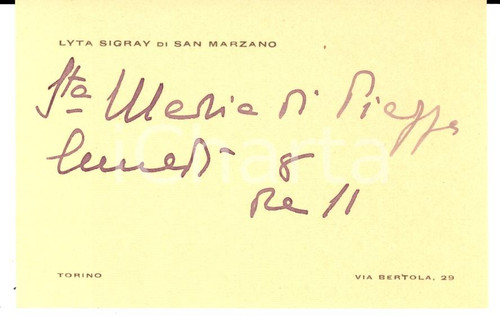 LYTA SIGRAY DI SAN MARZANO
Sta Maria di Piazza
lunedì 8
Ore 11
iCharta
TORINO
VIA BERTOLA, 29